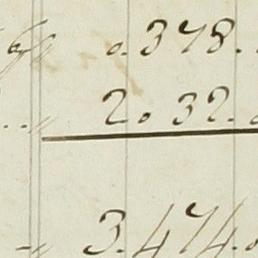 6 0.378.
2. 32.
3.474.